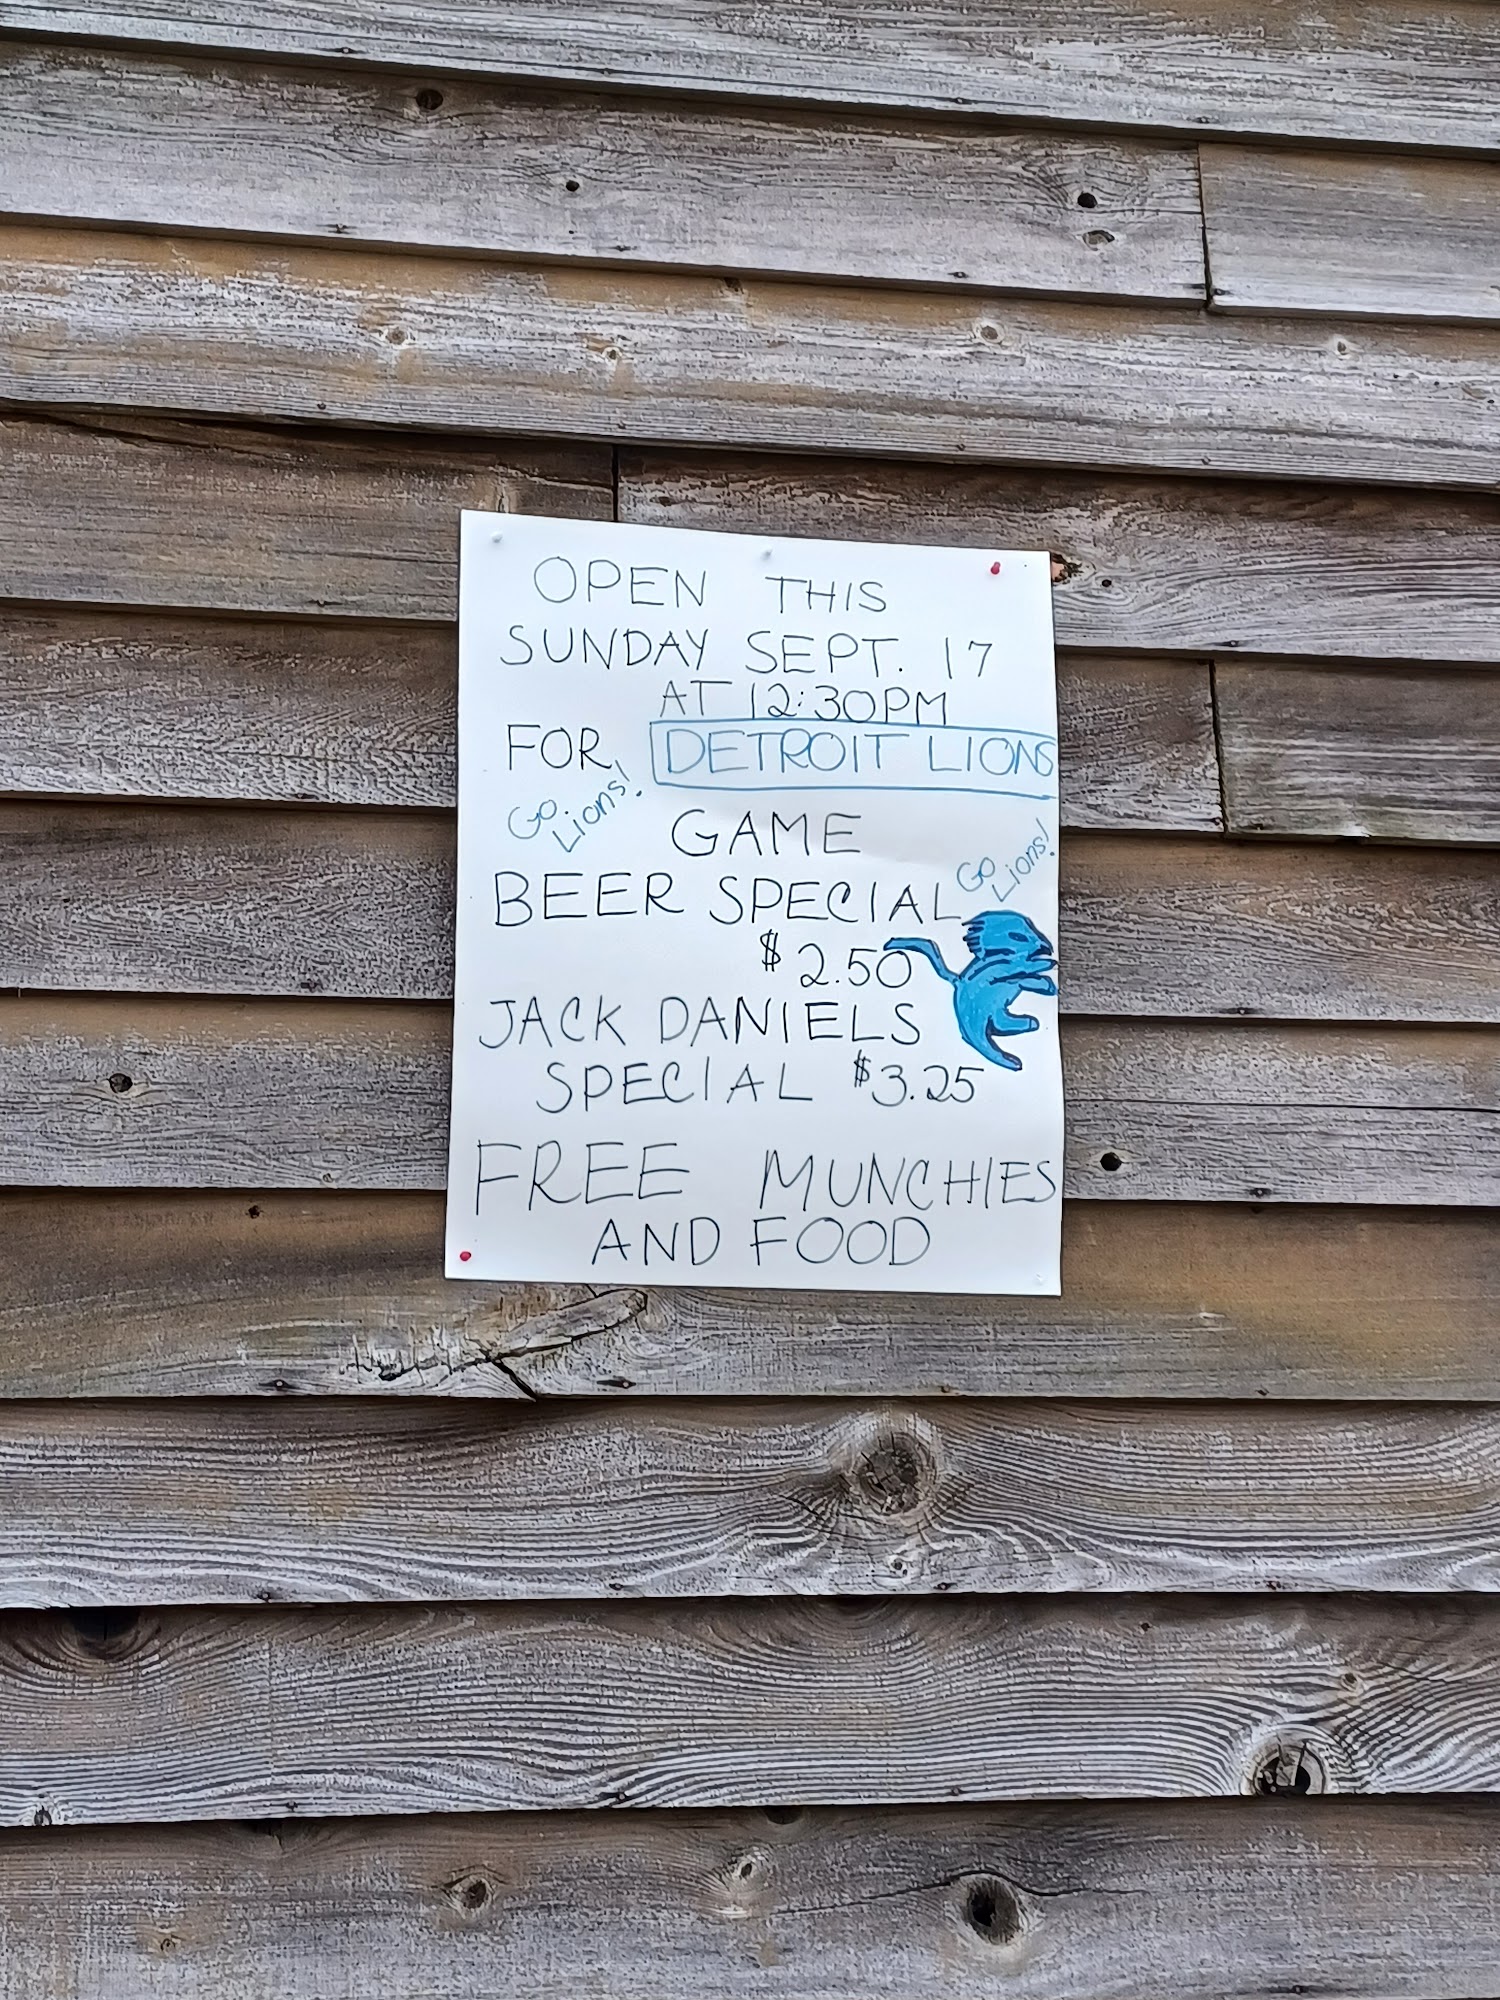 OPEN THIS
SUNDAY SEPT. 17
AT 12:30PM
FOR DETROIT LIONS
Go
Lions!
GAME
Go
Lions!
BEER SPECIAL
$2.50
JACK DANIELS
SPECIAL $3.25
FREE MUNCHIES
AND FOOD